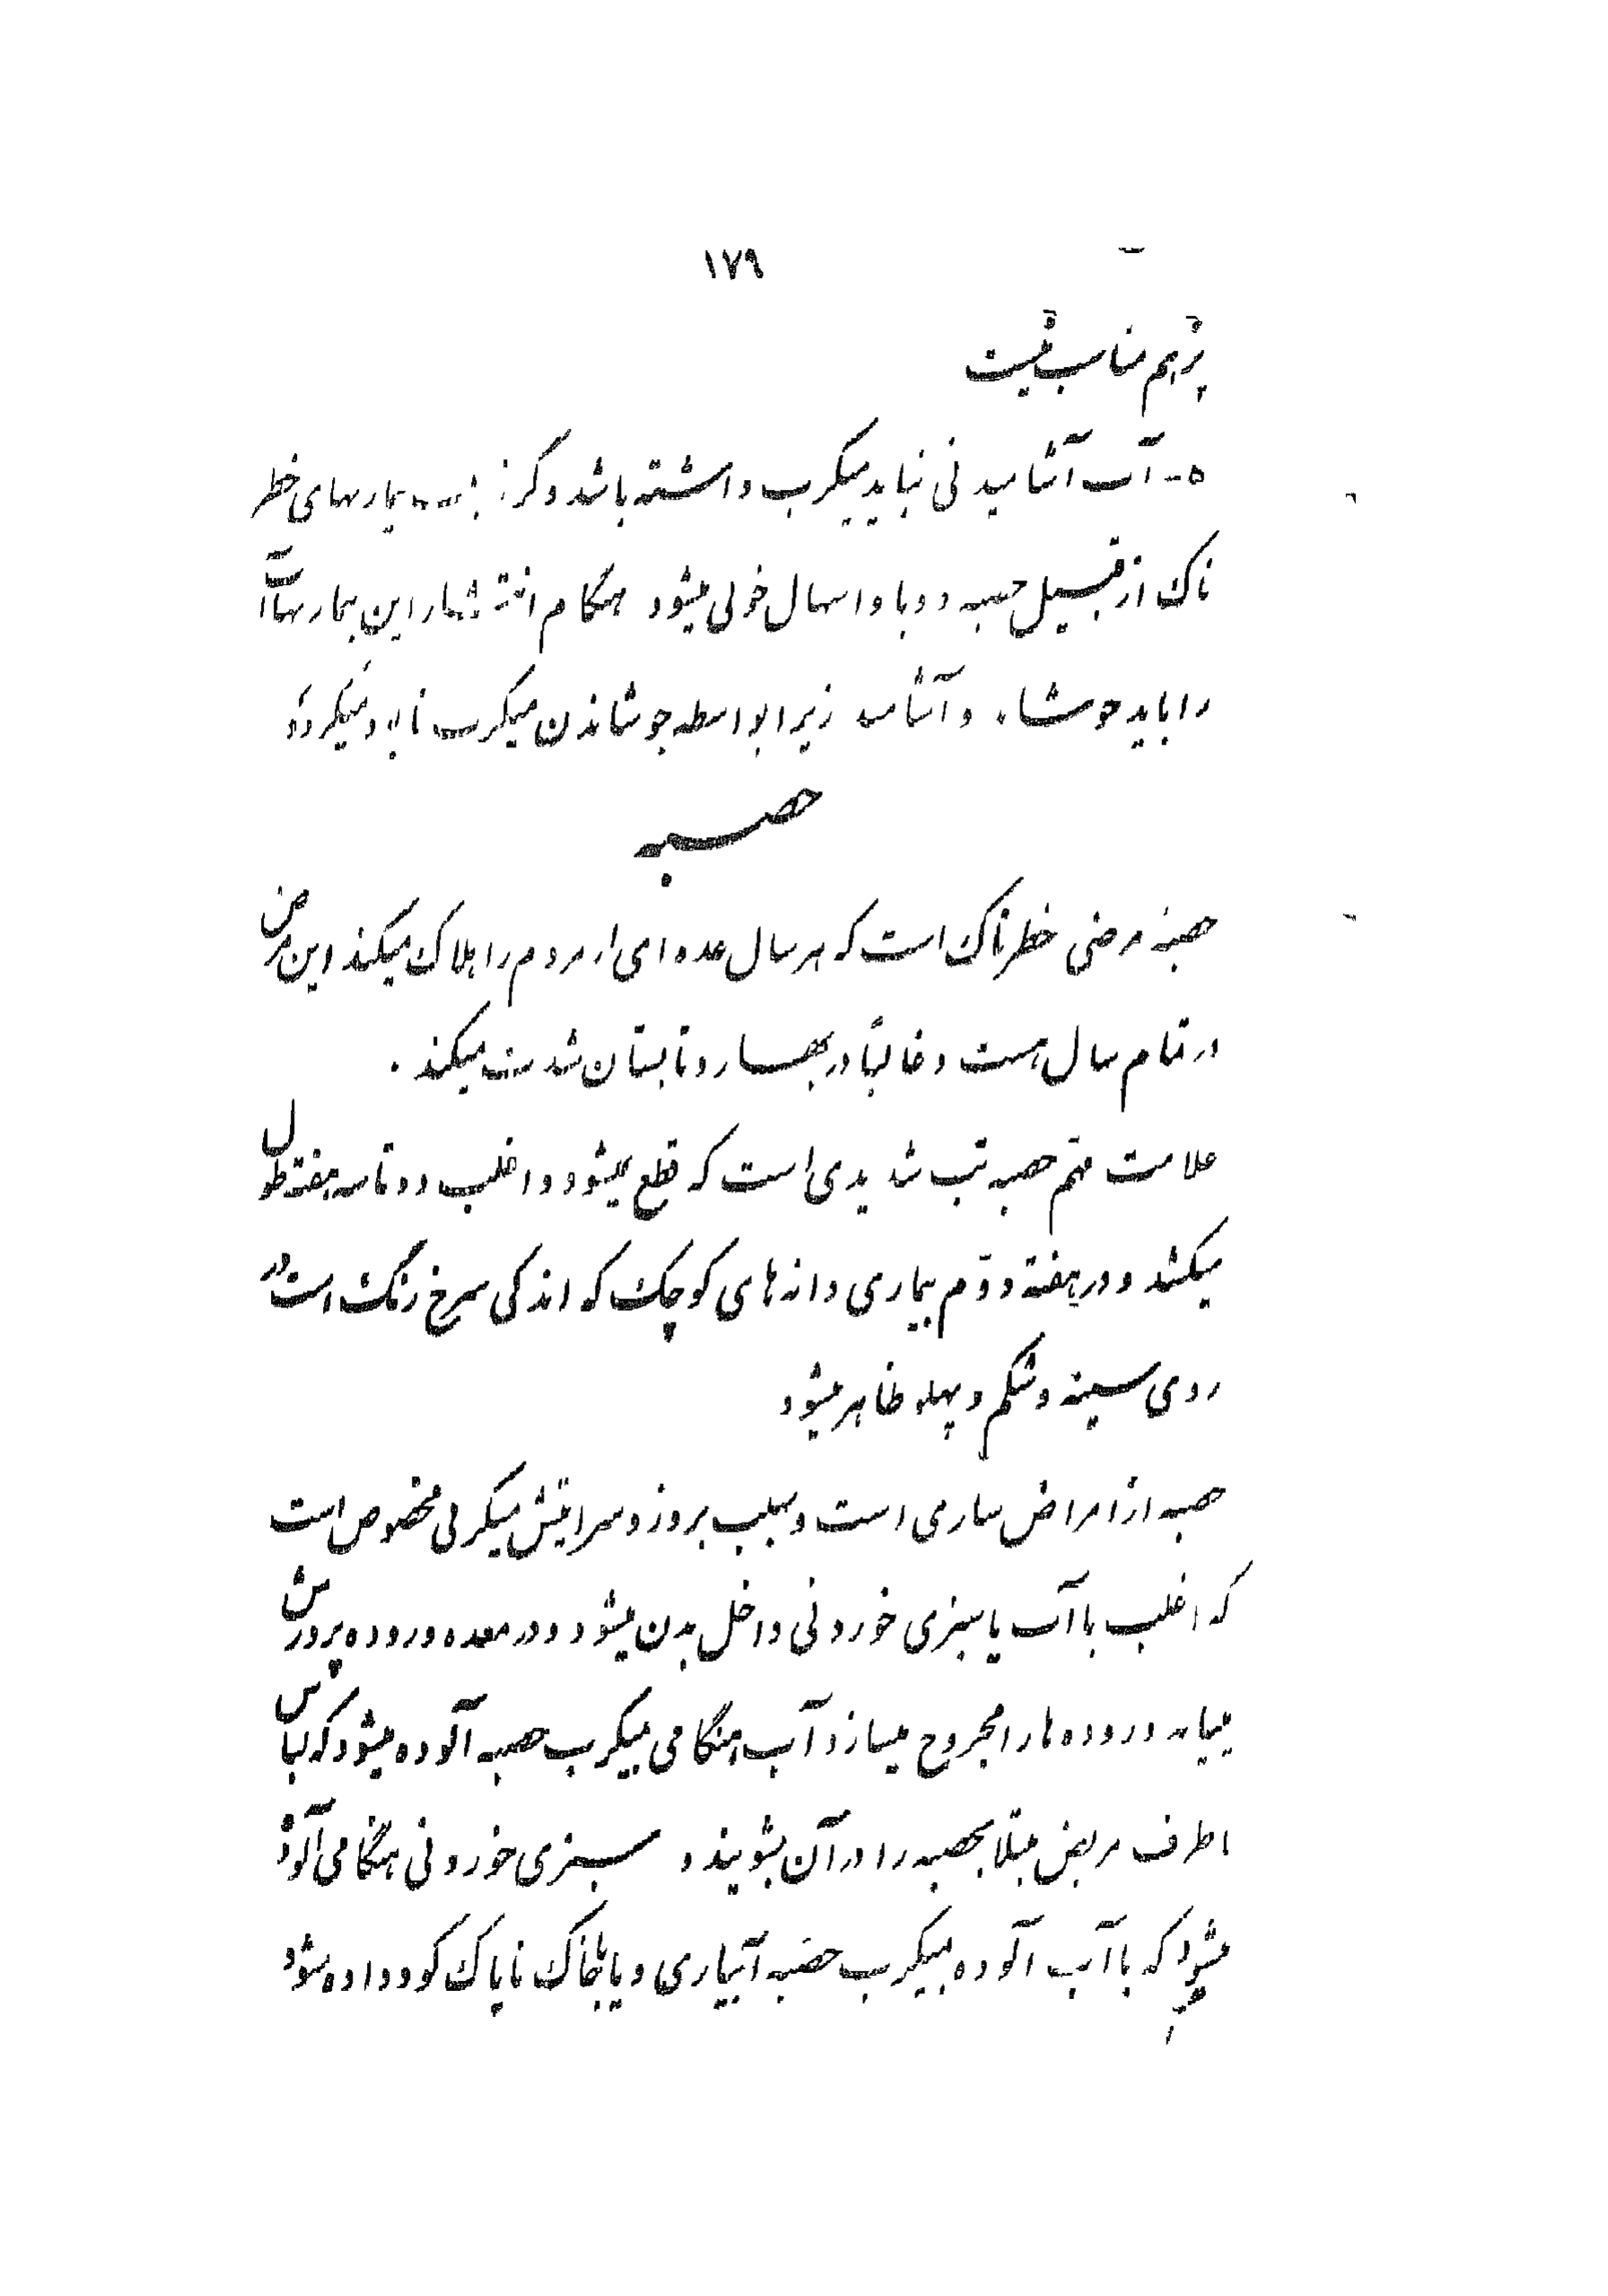 ۱۷۹
پز هم مناسب نیست
۵- آب آشامیدنی نباید میکرب داشته باشد وگرنه بیماریهای خطر
ناک از قبیل حصبه و وبا و اسهال خونی میشود هنگام انتشار این بیماریها آب
را باید جوشاند و آشامید زیرا بواسطه جوشاندن میکرب نابود میگردد
حصبه
حصبه مرضی خطرناک است که هر سال عده ای از مردم را هلاک میکند این مرض
در تمام سال هست و غالباً در بهار و تابستان شدت میکند .
علامت مهم حصبه تب شدیدی است که قطع نمیشود و اغلب دو تا سه هفته طول
میکشد و در هفته دوّم بیماری دانه های کوچک که اندکی سرخ رنگ است در
روی سینه و شکم و پهلو ظاهر میشود
حصبه از امراض ساری است و سبب بروز و سرایتش میکربی مخصوص است
که اغلب با آب یا سبزی خوردنی داخل بدن میشود و در معده و روده پرورش
مییابد و روده ها را مجروح میسازد آب هنگامی بمیکرب حصبه آلوده میشود که لباس
اطراف مریض مبتلا بحصبه را در آن بشویند و سبزی خوردنی هنگامی آلوده
میشود که با آب آلوده بمیکرب حصبه آبیاری و یا بخاک ناپاک کود داده شود